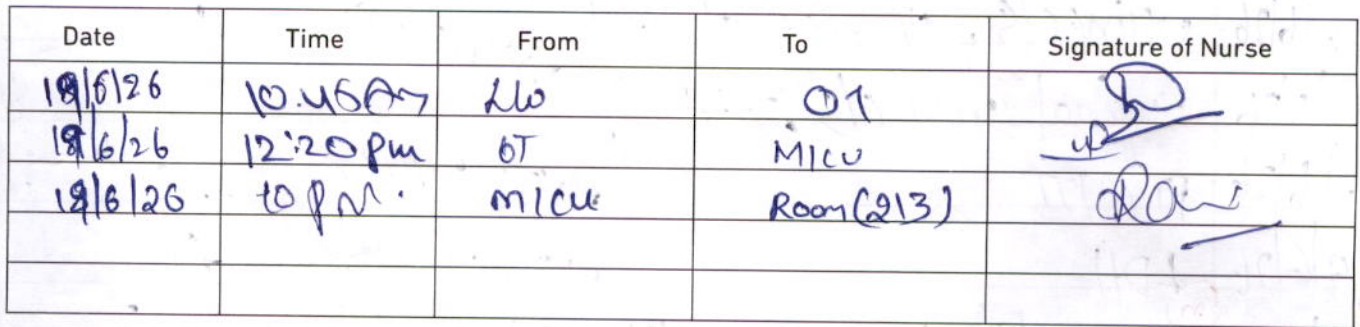 Date Time From To Signature of Nurse
18/6/26 10.45Am OT
18/6/26 12:20 pm OT MICU
18/6/26 10 PM. MICU Room (213)